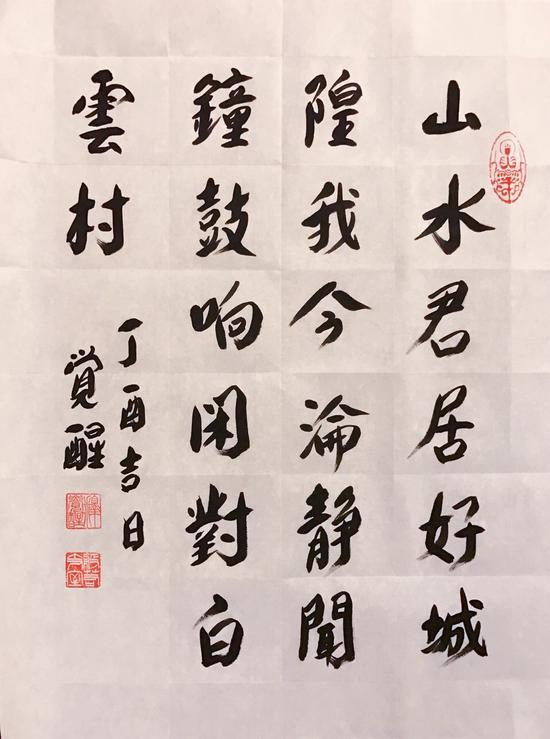 山水君居好城
隍我今淪静聞
鐘鼓响闲對白
雲村
丁酉吉日
覚醒